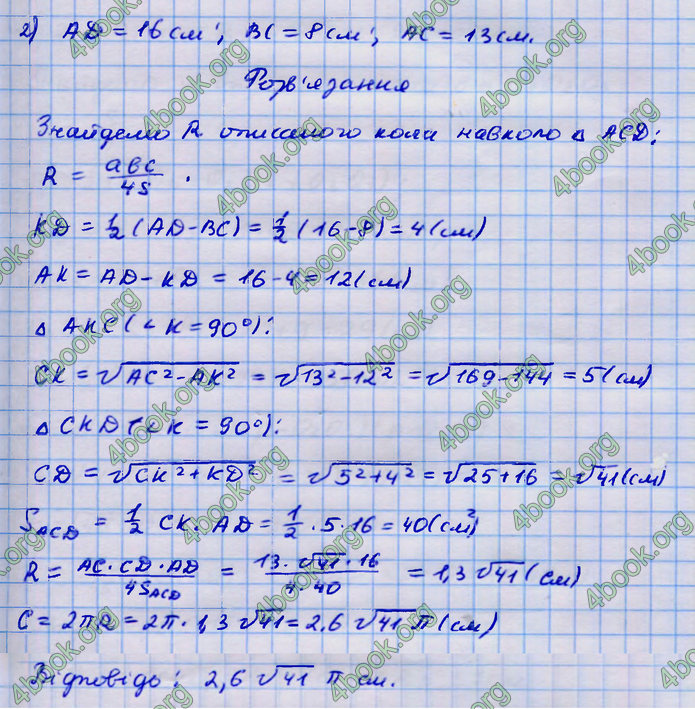 2) AD = 16 см; BC = 8 см; AC = 13 см.
Розв'язання
Знайдемо R описаного кола навколо Δ ACD:
R = abc/4S.
KD = 1/2 (AD - BC) = 1/2 (16 - 8) = 4 (см)
AK = AD - KD = 16 - 4 = 12 (см)
Δ AKC (∠K = 90°):
CK = √(AC² - AK²) = √(13² - 12²) = √(169 - 144) = 5 (см)
Δ CKD (∠K = 90°):
CD = √(CK² + KD²) = √(5² + 4²) = √(25 + 16) = √41 (см)
S_ACD = 1/2 CK · AD = 1/2 · 5 · 16 = 40 (см²)
R = (AC · CD · AD)/(4S_ACD) = (13 · √41 · 16)/(4 · 40) = 1,3 √41 (см)
C = 2πR = 2π · 1,3 √41 = 2,6 √41 π (см)
Відповідь: 2,6 √41 π см.
4book.org